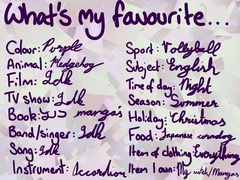 What's my favourite...
Colour: Purple
Animal: Hedgehog
Film: Idk
TV show: Idk
Book: mangas
Band/singer: Idk
Song: Idk
Instrument: Accordion
Sport: Volleyball
Subject: English
Time of day: Night
Season: Summer
Holiday: Christmas
Food: Japanese corndog
Item of clothing: Everything
Item I own: My watch/Mangas